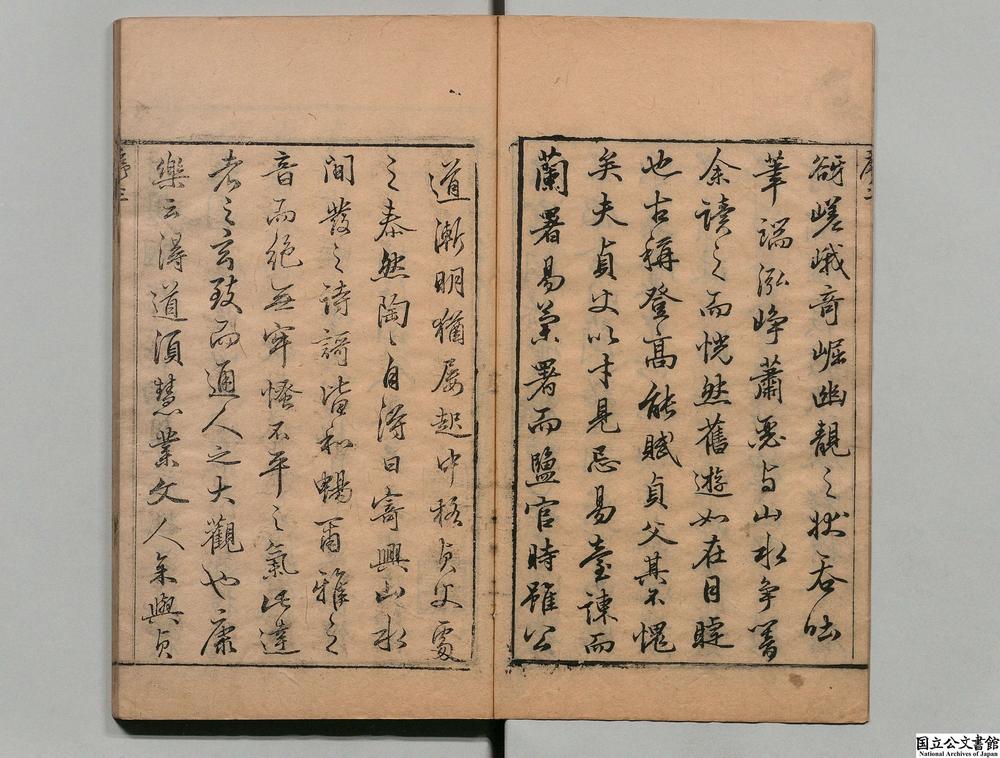 谺嵯峨奇崛幽靚之狀吞吐
筆端泓崢蕭瑟与山水爭響
余讀之而恍然舊遊如在目睫
也古稱登高能賦貞父其不愧
矣夫貞父以才見忌易臺諫而
蘭署易蘭署而鹽官時雖公
道漸明猶屢起中格貞父處
之泰然陶〻自得日寄興山水
間發之詩謌皆和暢爾雅之
音而絕無牢慅不平之氣此達
者之玄致而通人之大觀也康
樂云得道須慧業文人余與貞
序二
序三
国立公文書館
National Archives of Japan